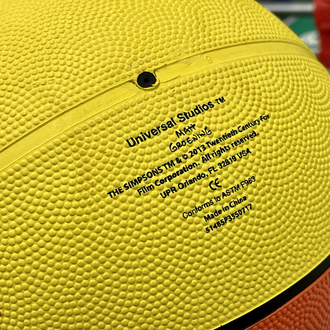 Universal Studios ™
MATT
GROENING
THE SIMPSONS TM & © 2013 Twentieth Century Fox
Film Corporation. All rights reserved.
UPR Orlando, FL 32819 USA
CE
Conforms to ASTM F963
Made in China